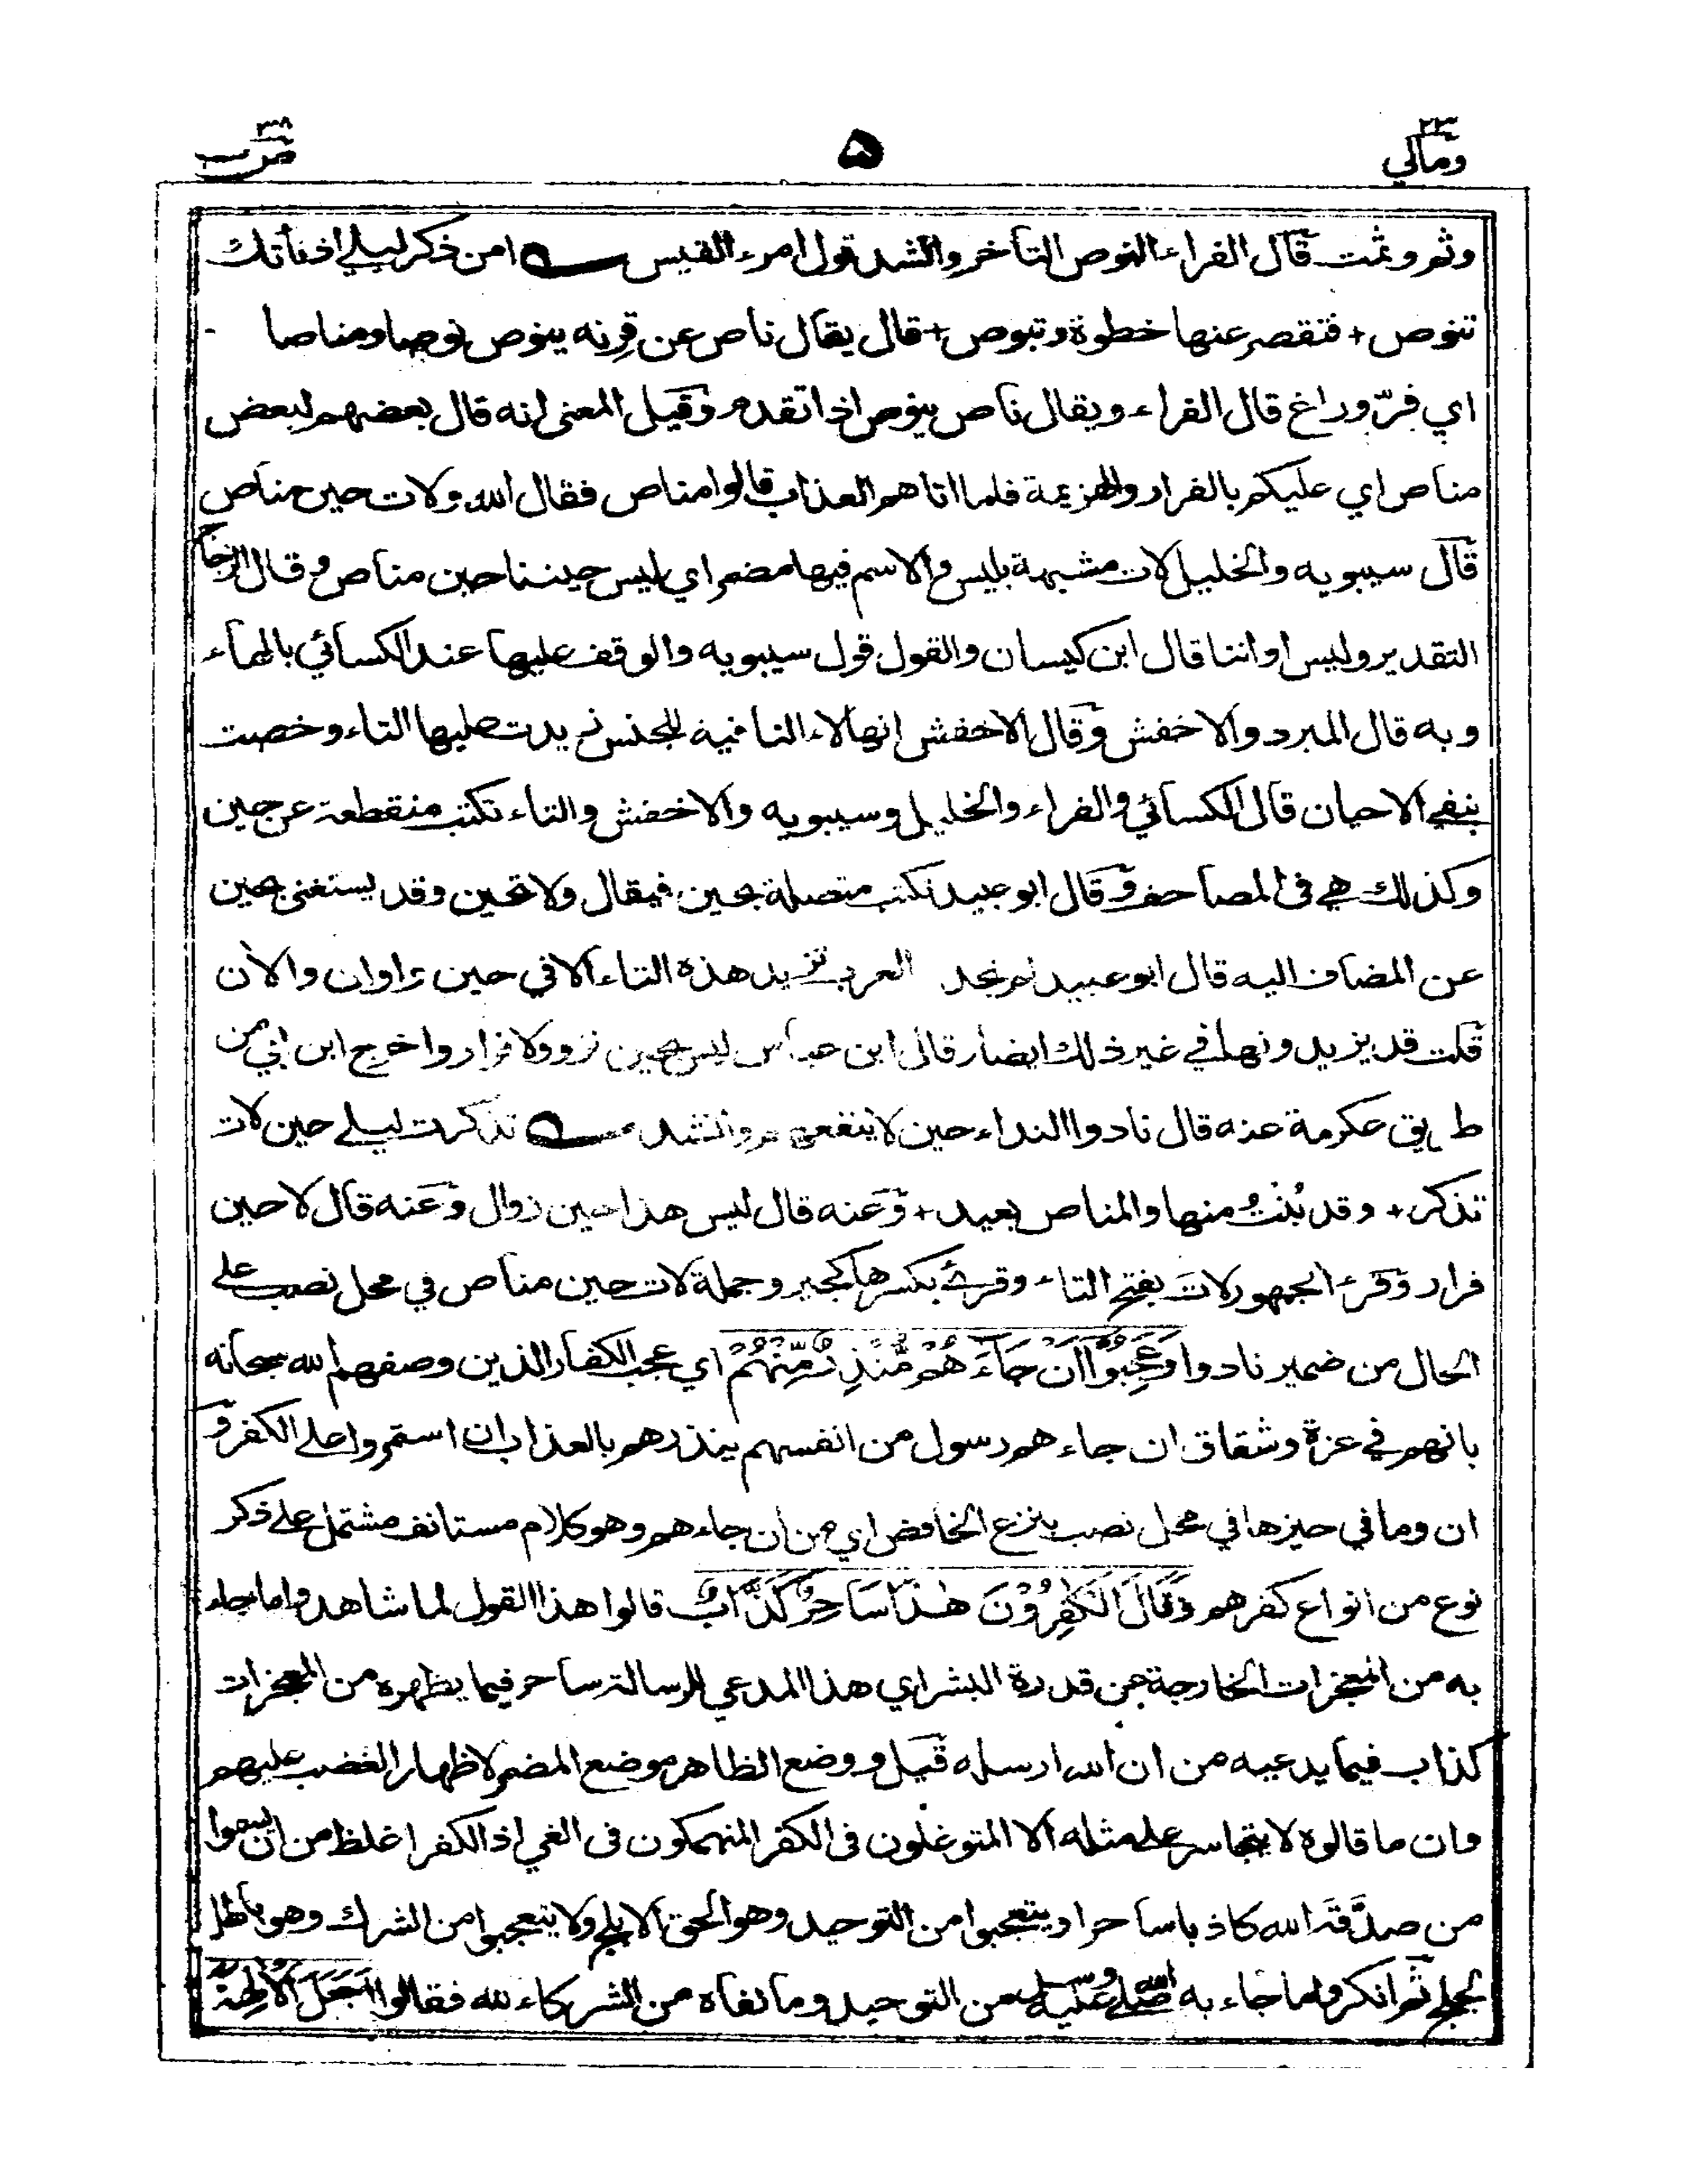 ومالي ٢٣
٥
ص ٣٨
وثم وثمت قال الفراء النوص التأخر وانشد قول امرء القيس امن ذكر ليلى اذ نأتك
تنوص + فتقصر عنها خطوة وتبوص + قال يقال ناص عن قرنه ينوص نوصا ومناصا
اي فرّ وراغ قال الفراء ويقال ناص ينوص اذا تقدم وقيل المعنى انه قال بعضهم لبعض
مناص اي عليكم بالفرار والهزيمة فلما اتاهم العذاب قالوا مناص فقال الله ولات حين مناص
قال سيبويه والخليل لات مشبهة بليس والاسم فيها مضمر اي ليس حيننا حين مناص وقال الزجاج
التقدير وليس اواننا قال ابن كيسان والقول قول سيبويه والوقف عليها عند الكسائي بالهاء
وبه قال المبرد والاخفش وقال الاخفش انها لاء النافية للجنس زيدت عليها التاء وخصت
بنفي الاحيان قال الكسائي والفراء والخليل وسيبويه والاخفش والتاء تكتب منقطعة عن حين
وكذلك هي في المصاحف وقال ابو عبيد تكتب متصلة بحين فيقال ولا تحين وقد يستغنى بحين
عن المضاف اليه قال ابو عبيد لم نجد العرب تزيد هذه التاء الا في حين واوان والآن
قلت قد يزيدونها في غير ذلك ايضا قال ابن عباس ليس بحين نزو ولا فرار واخرج ابن ابي من
طريق عكرمة عنه قال نادوا النداء حين لا ينفعهم وانشد تذكرت ليلى حين لات
تذكر + وقد بُنْتُ منها والمناص بعيد + وعنه قال ليس هذا حين زوال وعنه قال لا حين
فرار وقرء الجمهور لاتَ بفتح التاء وقرئ بكسرها كجير وجملة لات حين مناص في محل نصب على
الحال من ضمير نادوا وَعَجِبُوْا اَنْ جَاۤءَهُمْ مُّنْذِرٌ مِّنْهُمْ اي عجب الكفار الذين وصفهم الله سبحانه
بانهم في عزة وشقاق ان جاءهم رسول من انفسهم ينذرهم بالعذاب ان استمروا على الكفر و
ان وما في حيزها في محل نصب بنزع الخافض اي من ان جاءهم وهو كلام مستانف مشتمل على ذكر
نوع من انواع كفرهم وَقَالَ الْكٰفِرُوْنَ هٰذَا سَاحِرٌ كَذَّابٌ قالوا هذا القول لما شاهدوا ما جاء
به من المعجزات الخارجة عن قدرة البشر اي هذا المدعي للرسالة ساحر فيما يظهره من المعجزات
كذاب فيما يدعيه من ان الله ارسله قيل ووضع الظاهر موضع المضمر لاظهار الغضب عليهم
وان ما قالوه لا يتجاسر على مثله الا المتوغلون في الكفر المنهمكون في الغي اذ الكفر اغلظ من ان يسموا
من صدّقه الله كاذبا ساحرا ويتعجبوا من التوحيد وهو الحق الابلج ولا يتعجبوا من الشرك وهو باطل
لجلج ثم انكروا ما جاء به صلى الله عليه وسلم من التوحيد وما نفاه من الشركاء لله فقالوا اَجَعَلَ الْاٰلِهَةَ